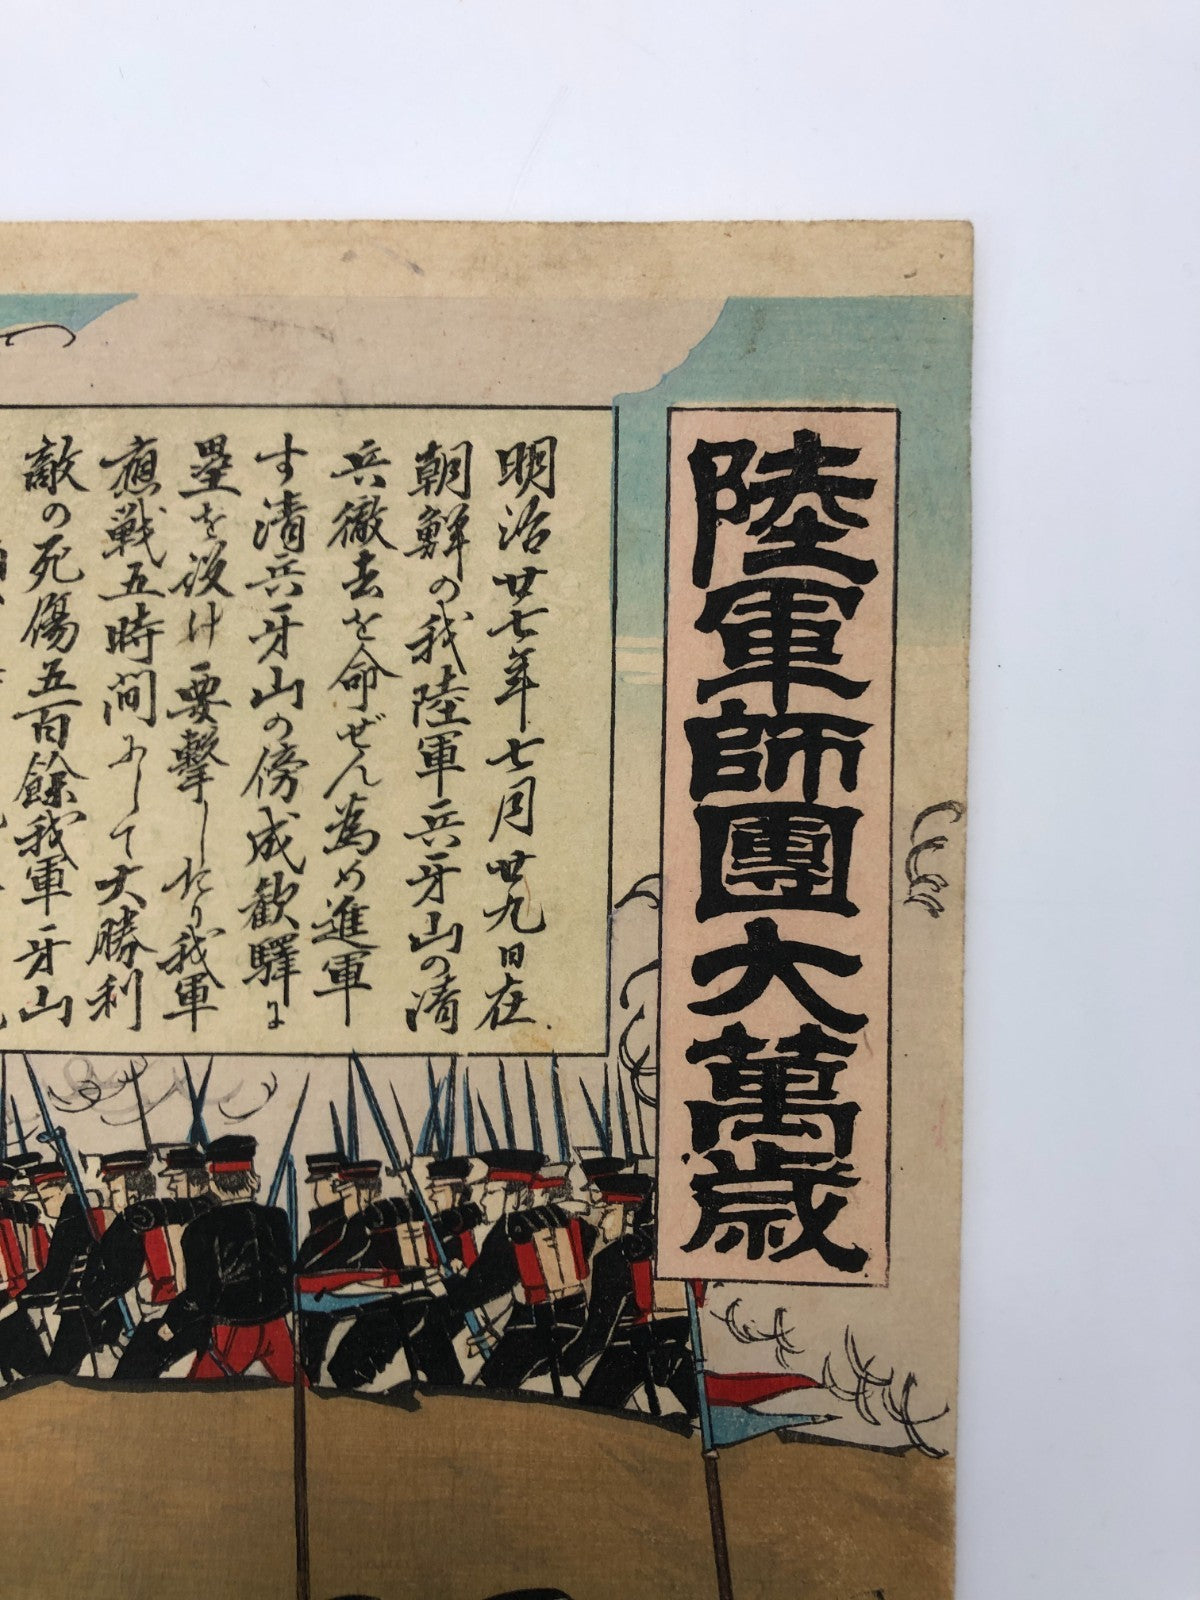 陸軍師團大萬歳
明治廿七年七月廿九日在
朝鮮の我陸軍兵牙山の清
兵徹去を命ぜん為め進軍
す清兵牙山の傍成歓驛に
塁を設け要撃したり我軍
應戦五時間にして大勝利
敵の死傷五百餘我軍牙山